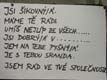 JSI ŠIKOVNÝ/Á.
MÁME TĚ RÁDI.
UMÍŠ NEJLÍP ZE VŠECH.....
JSI DOBRÝ/Á V.......
JSEM NA TEBE PYŠNÝ/Á.
JE S TEBOU SRANDA.
JSEM RÁD VE TVÉ SPOLEČNOSTI